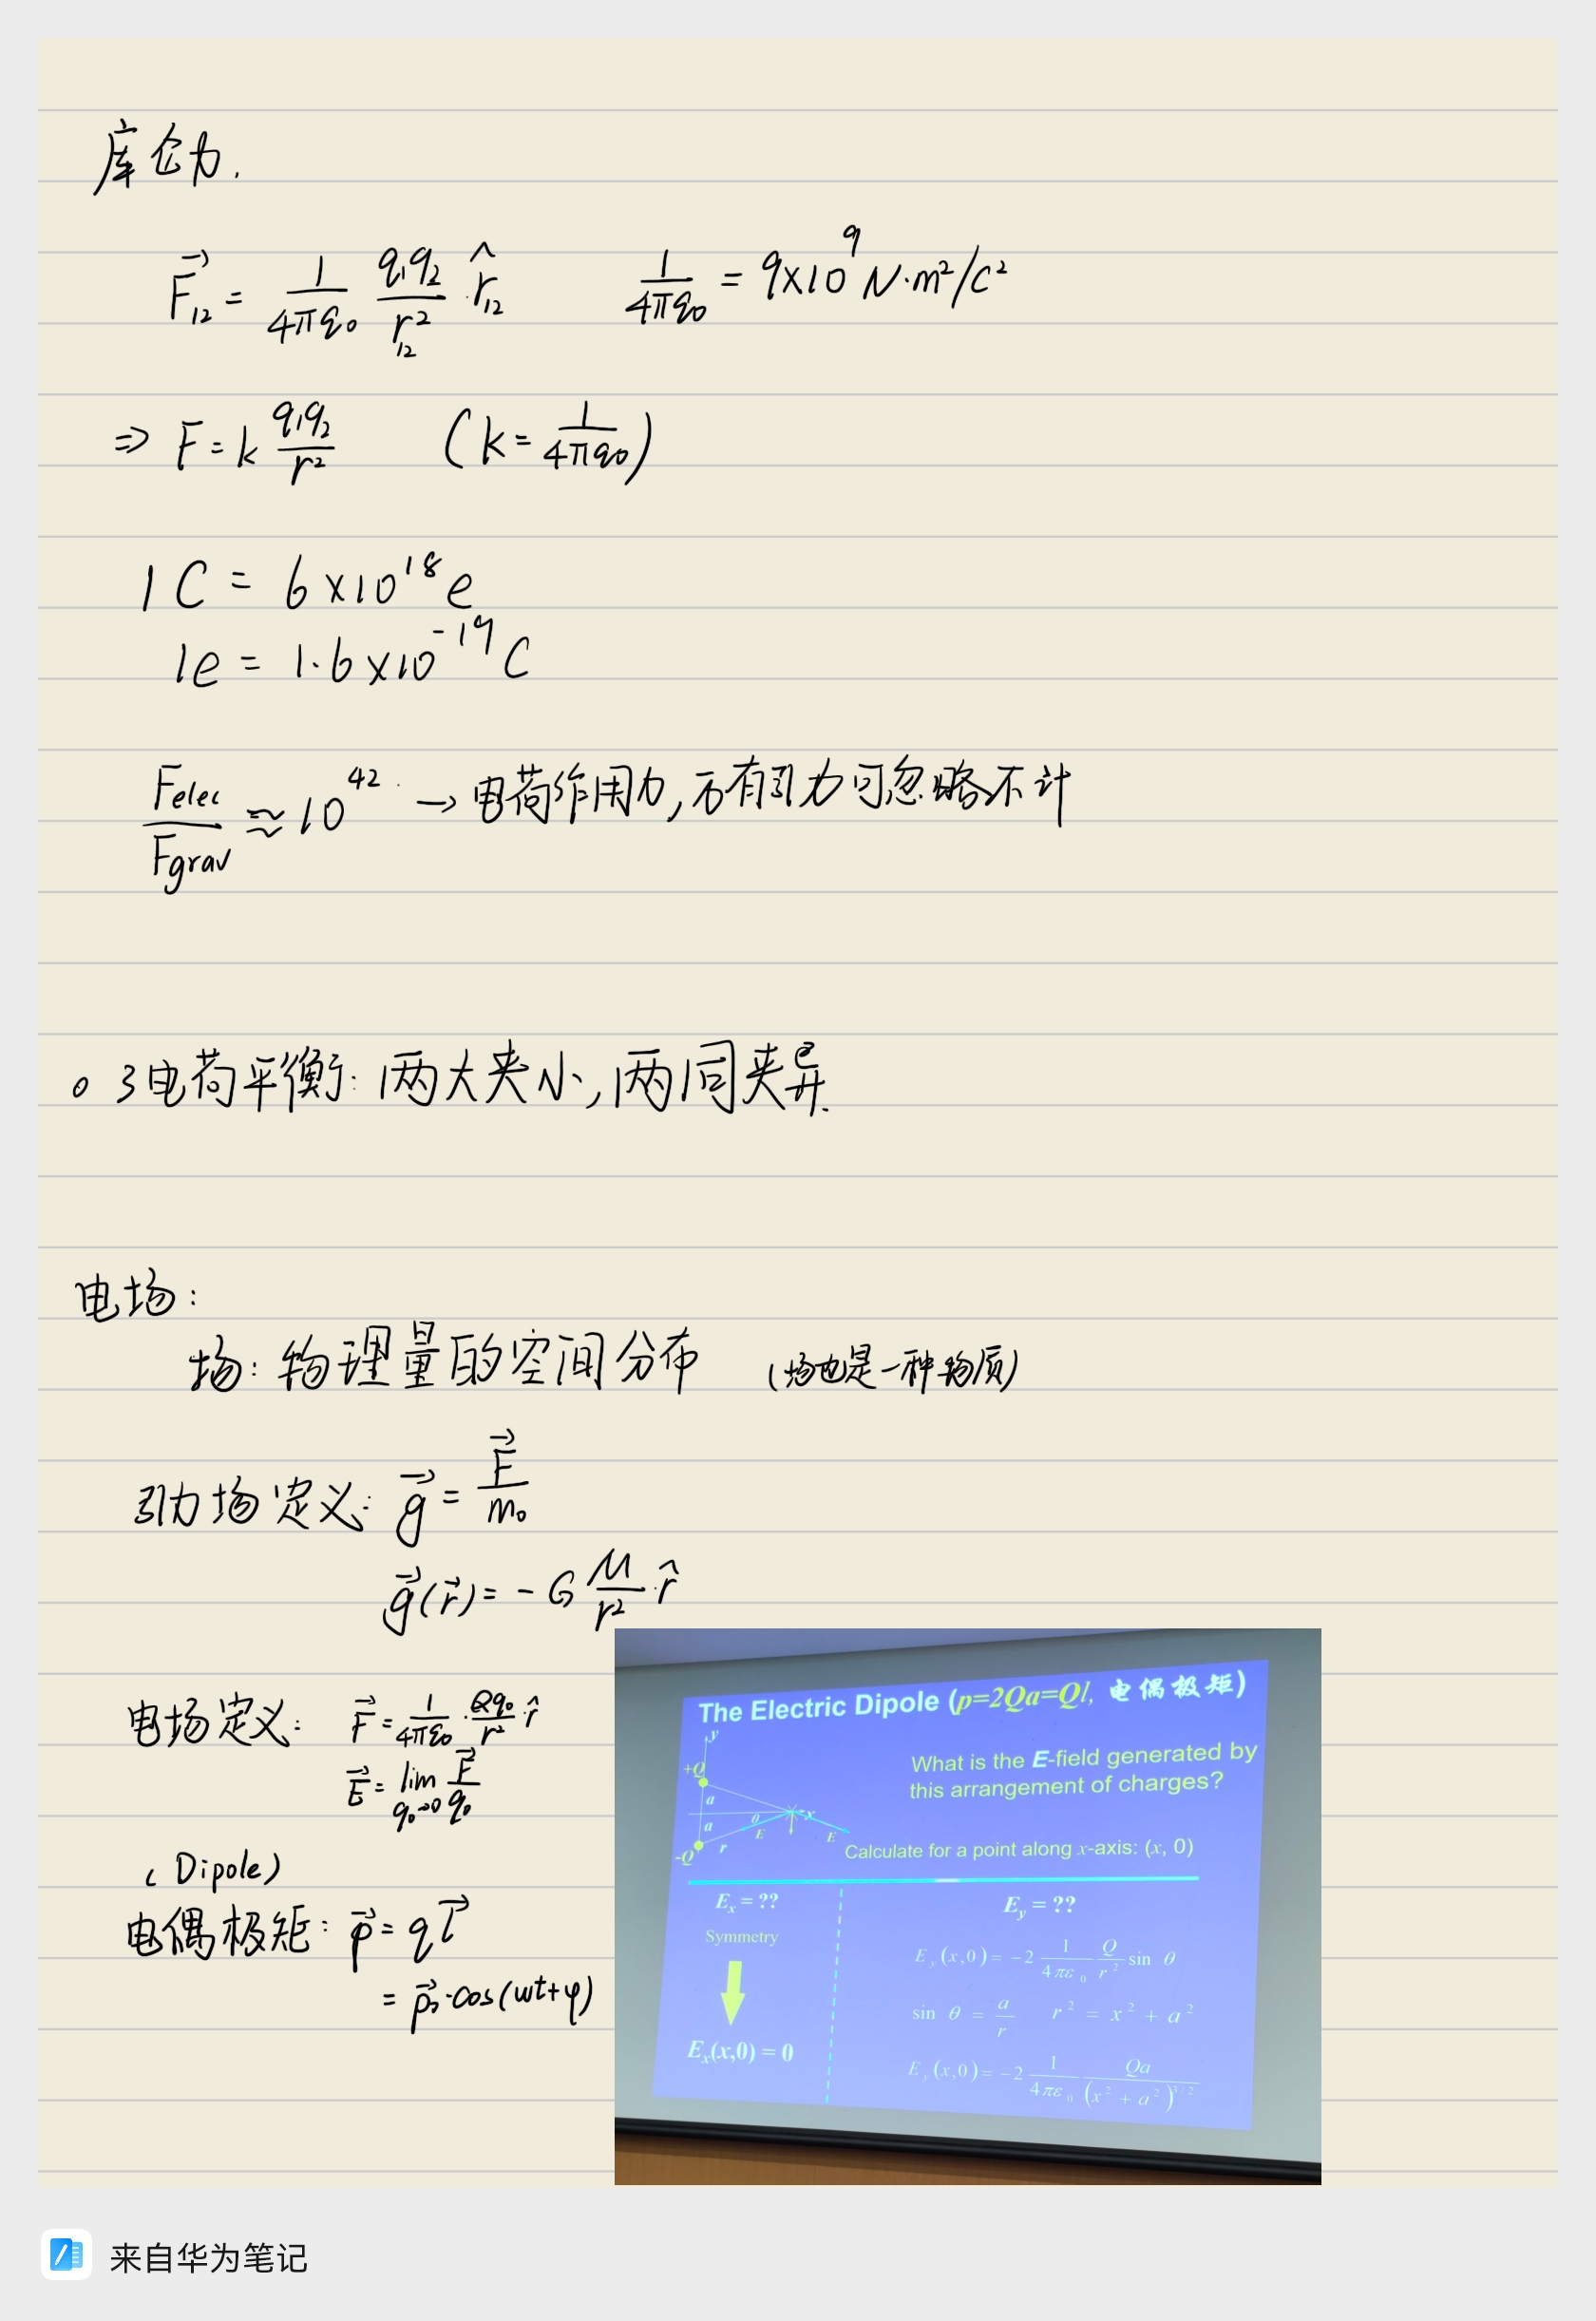 库仑力.
F⃗₁₂ = 1/(4πε₀) q₁q₂/r₁₂² · r̂₁₂    1/(4πε₀) = 9×10⁹ N·m²/C²
⇒ F = k q₁q₂/r²    (k = 1/(4πε₀))
1 C = 6×10¹⁸ e
1e = 1.6×10⁻¹⁹ C
Felec/Fgrav ≈ 10⁴² → 电荷作用力, 万有引力可忽略不计
o 3电荷平衡: 两大夹小, 两同夹异.
电场:
场: 物理量的空间分布 (场也是一种物质)
引力场定义: g⃗ = F⃗/m₀
g⃗(r⃗) = -G M/r² · r̂
电场定义: F⃗ = 1/(4πε₀) · Qq₀/r² · r̂
E⃗ = lim q₀→0 F⃗/q₀
(Dipole)
电偶极矩: p⃗ = q l⃗
= p⃗₀·cos(ωt+φ)
The Electric Dipole (p=2Qa=Ql, 电偶极矩)
y
+Q
a
a
-Q
r
θ
E
x
E
What is the E-field generated by
this arrangement of charges?
Calculate for a point along x-axis: (x, 0)
Eₓ = ??
Symmetry
Eₓ(x,0) = 0
E_y = ??
E_y(x,0) = -2 1/(4πε₀) Q/r² sin θ
sin θ = a/r    r² = x² + a²
E_y(x,0) = -2 1/(4πε₀) Qa/(x² + a²)^(3/2)
来自华为笔记